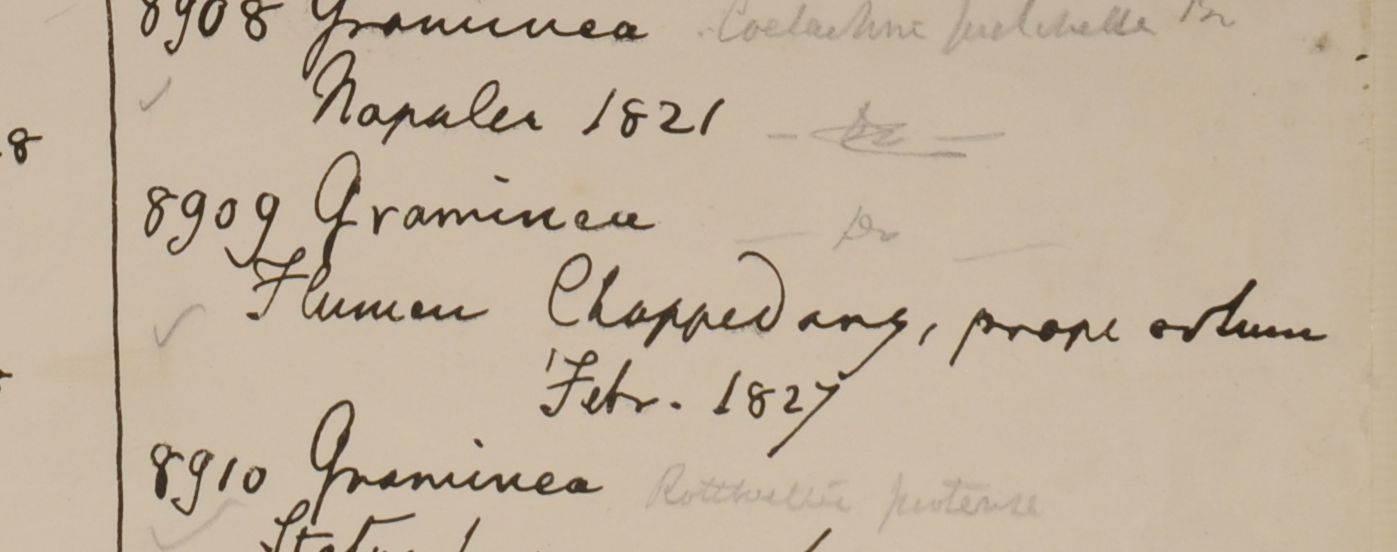 8908 Graminea Coelachne pulchella Br
Napalea 1821
8
8909 Graminea Do
Flumen Chappedong, prope ostum
Febr. 1827
8910 Graminea Rottboellia